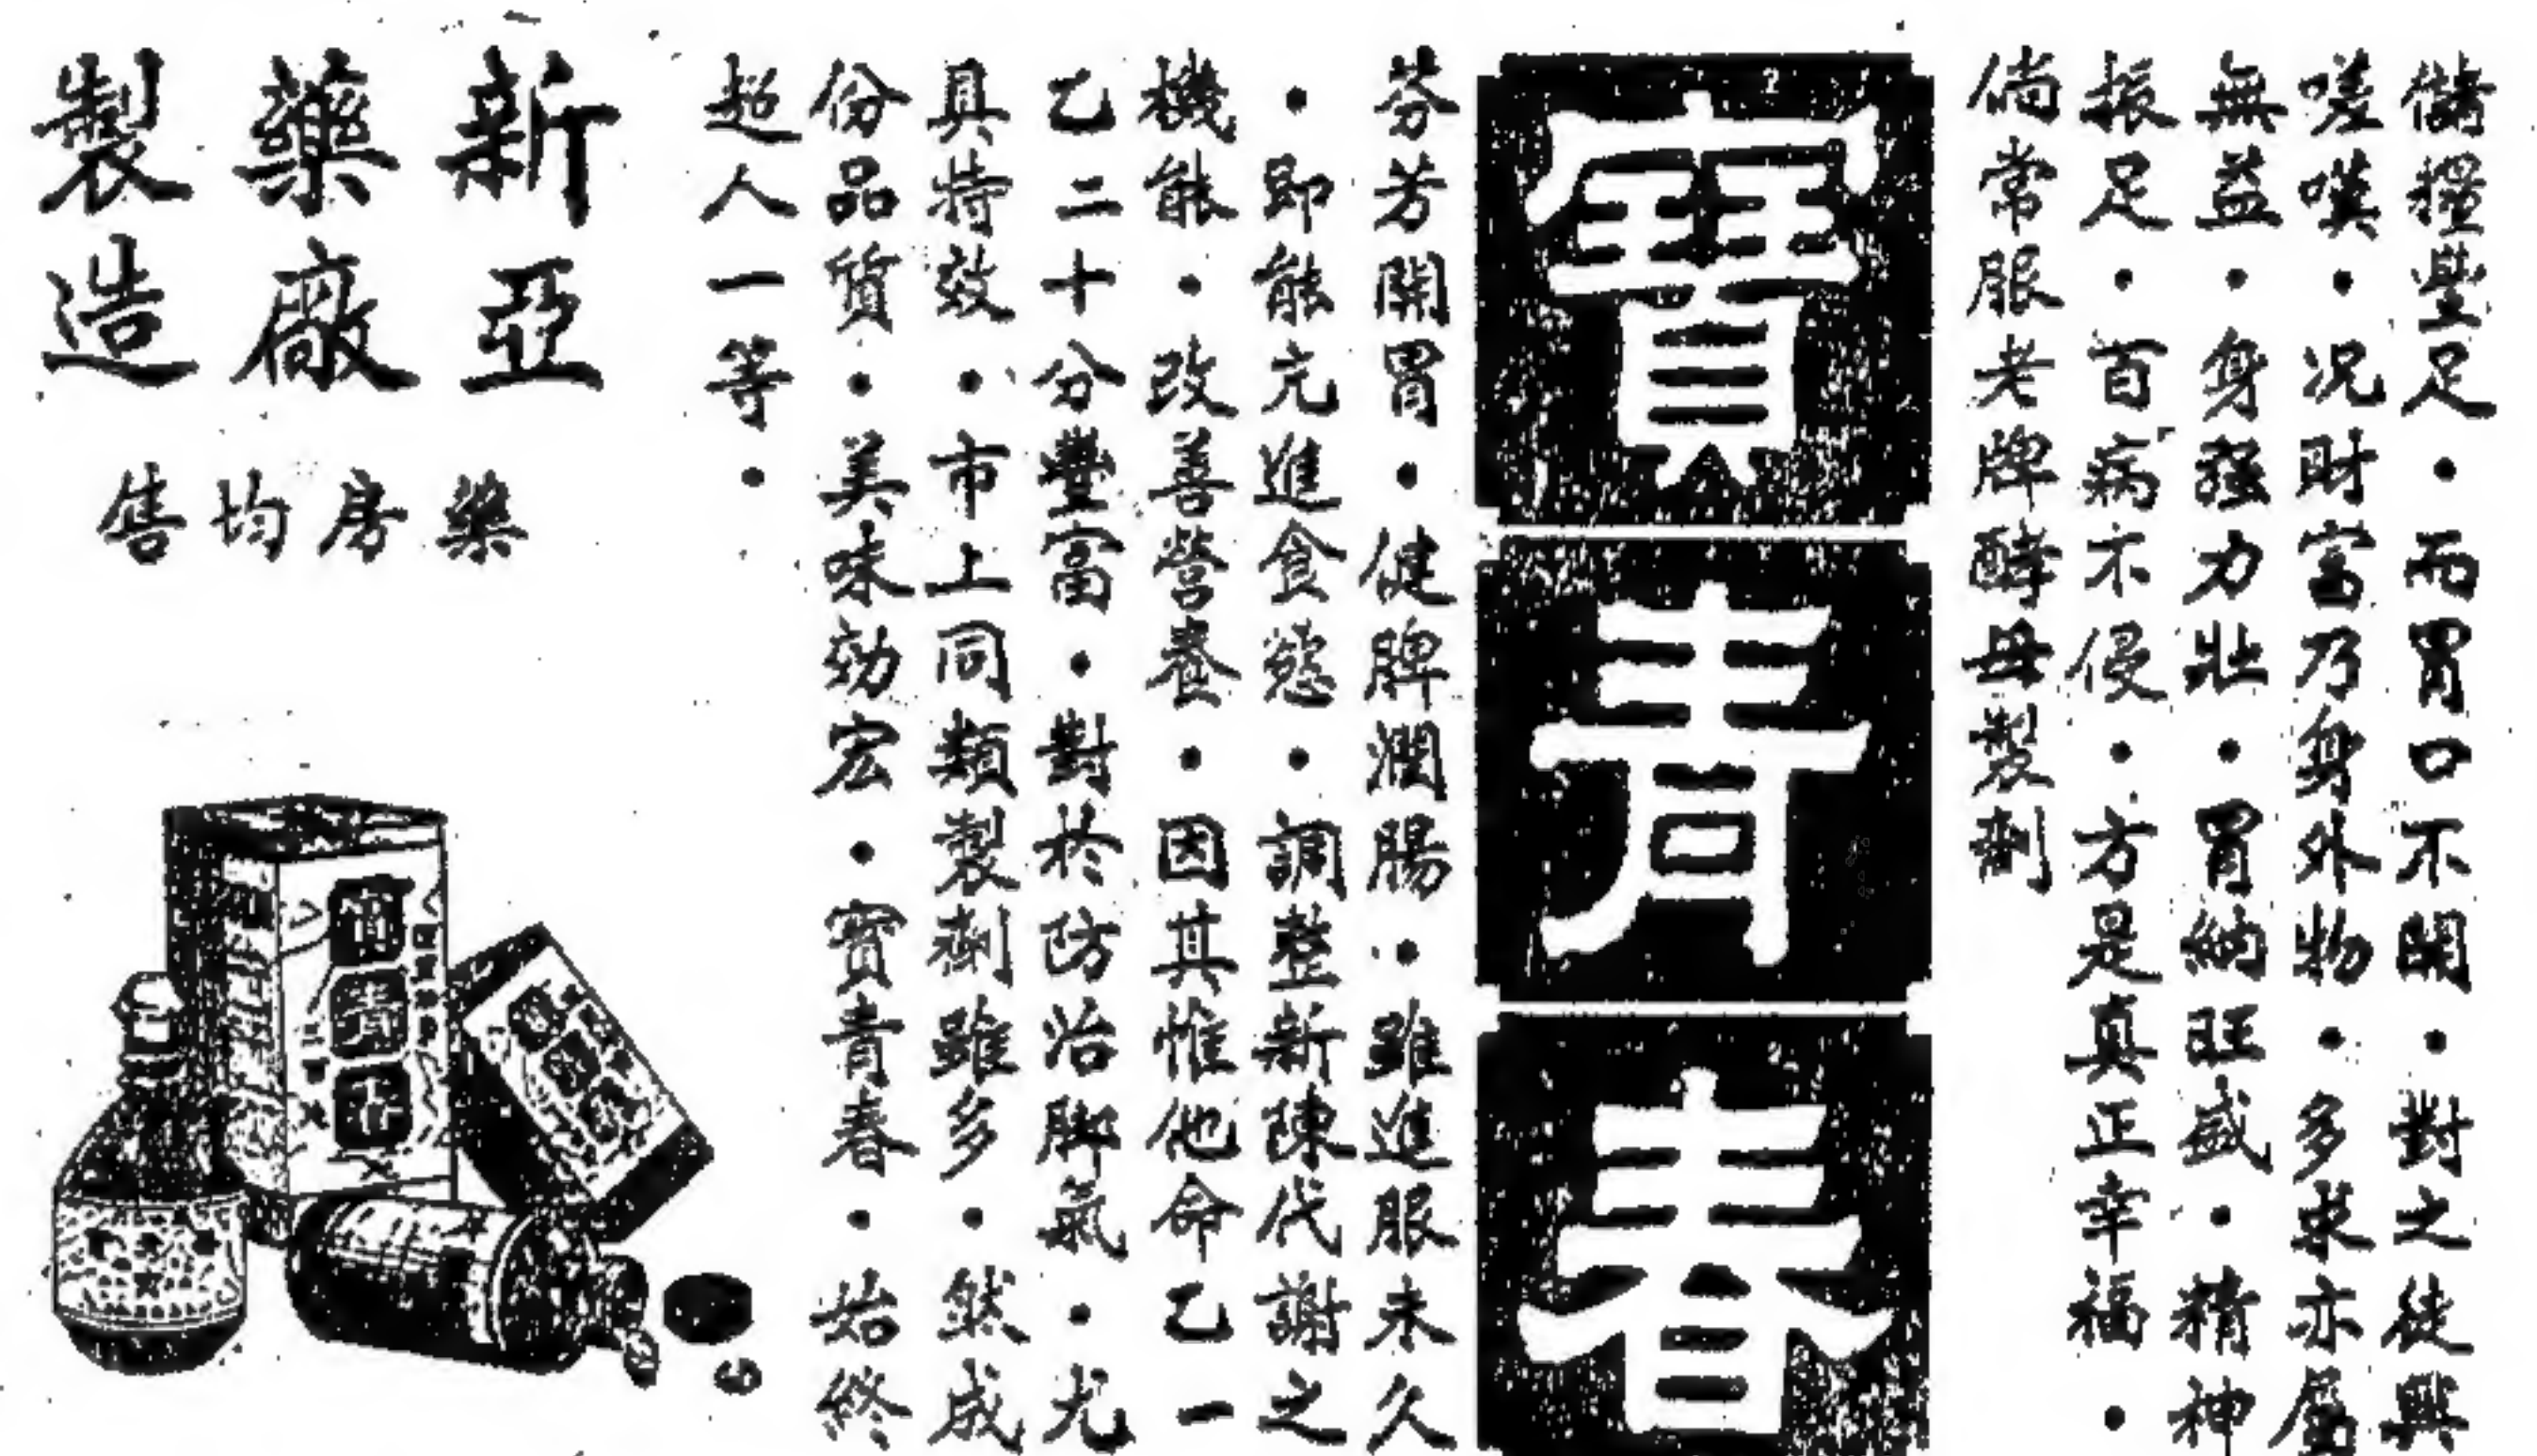 儲糧豐足·而胃口不開·對之徒興
嗟嘆·況財富乃身外物·多求亦屬
無益·身強力壯·胃納旺盛·精神
振足·百病不侵·方是真正幸福·
倘常服老牌酵母製劑
寶青春
芬芳開胃·健脾潤腸·雖進服未久
·即能亢進食慾·調整新陳代謝之
機能·改善營養·因其惟他命乙一
乙二十分豐富·對於防治脚氣·尤
具特效·市上同類製劑雖多·然成
份品質·美味効宏·寶青春·始終
超人一等·
新亞
藥廠
製造
藥房均售
寶青春